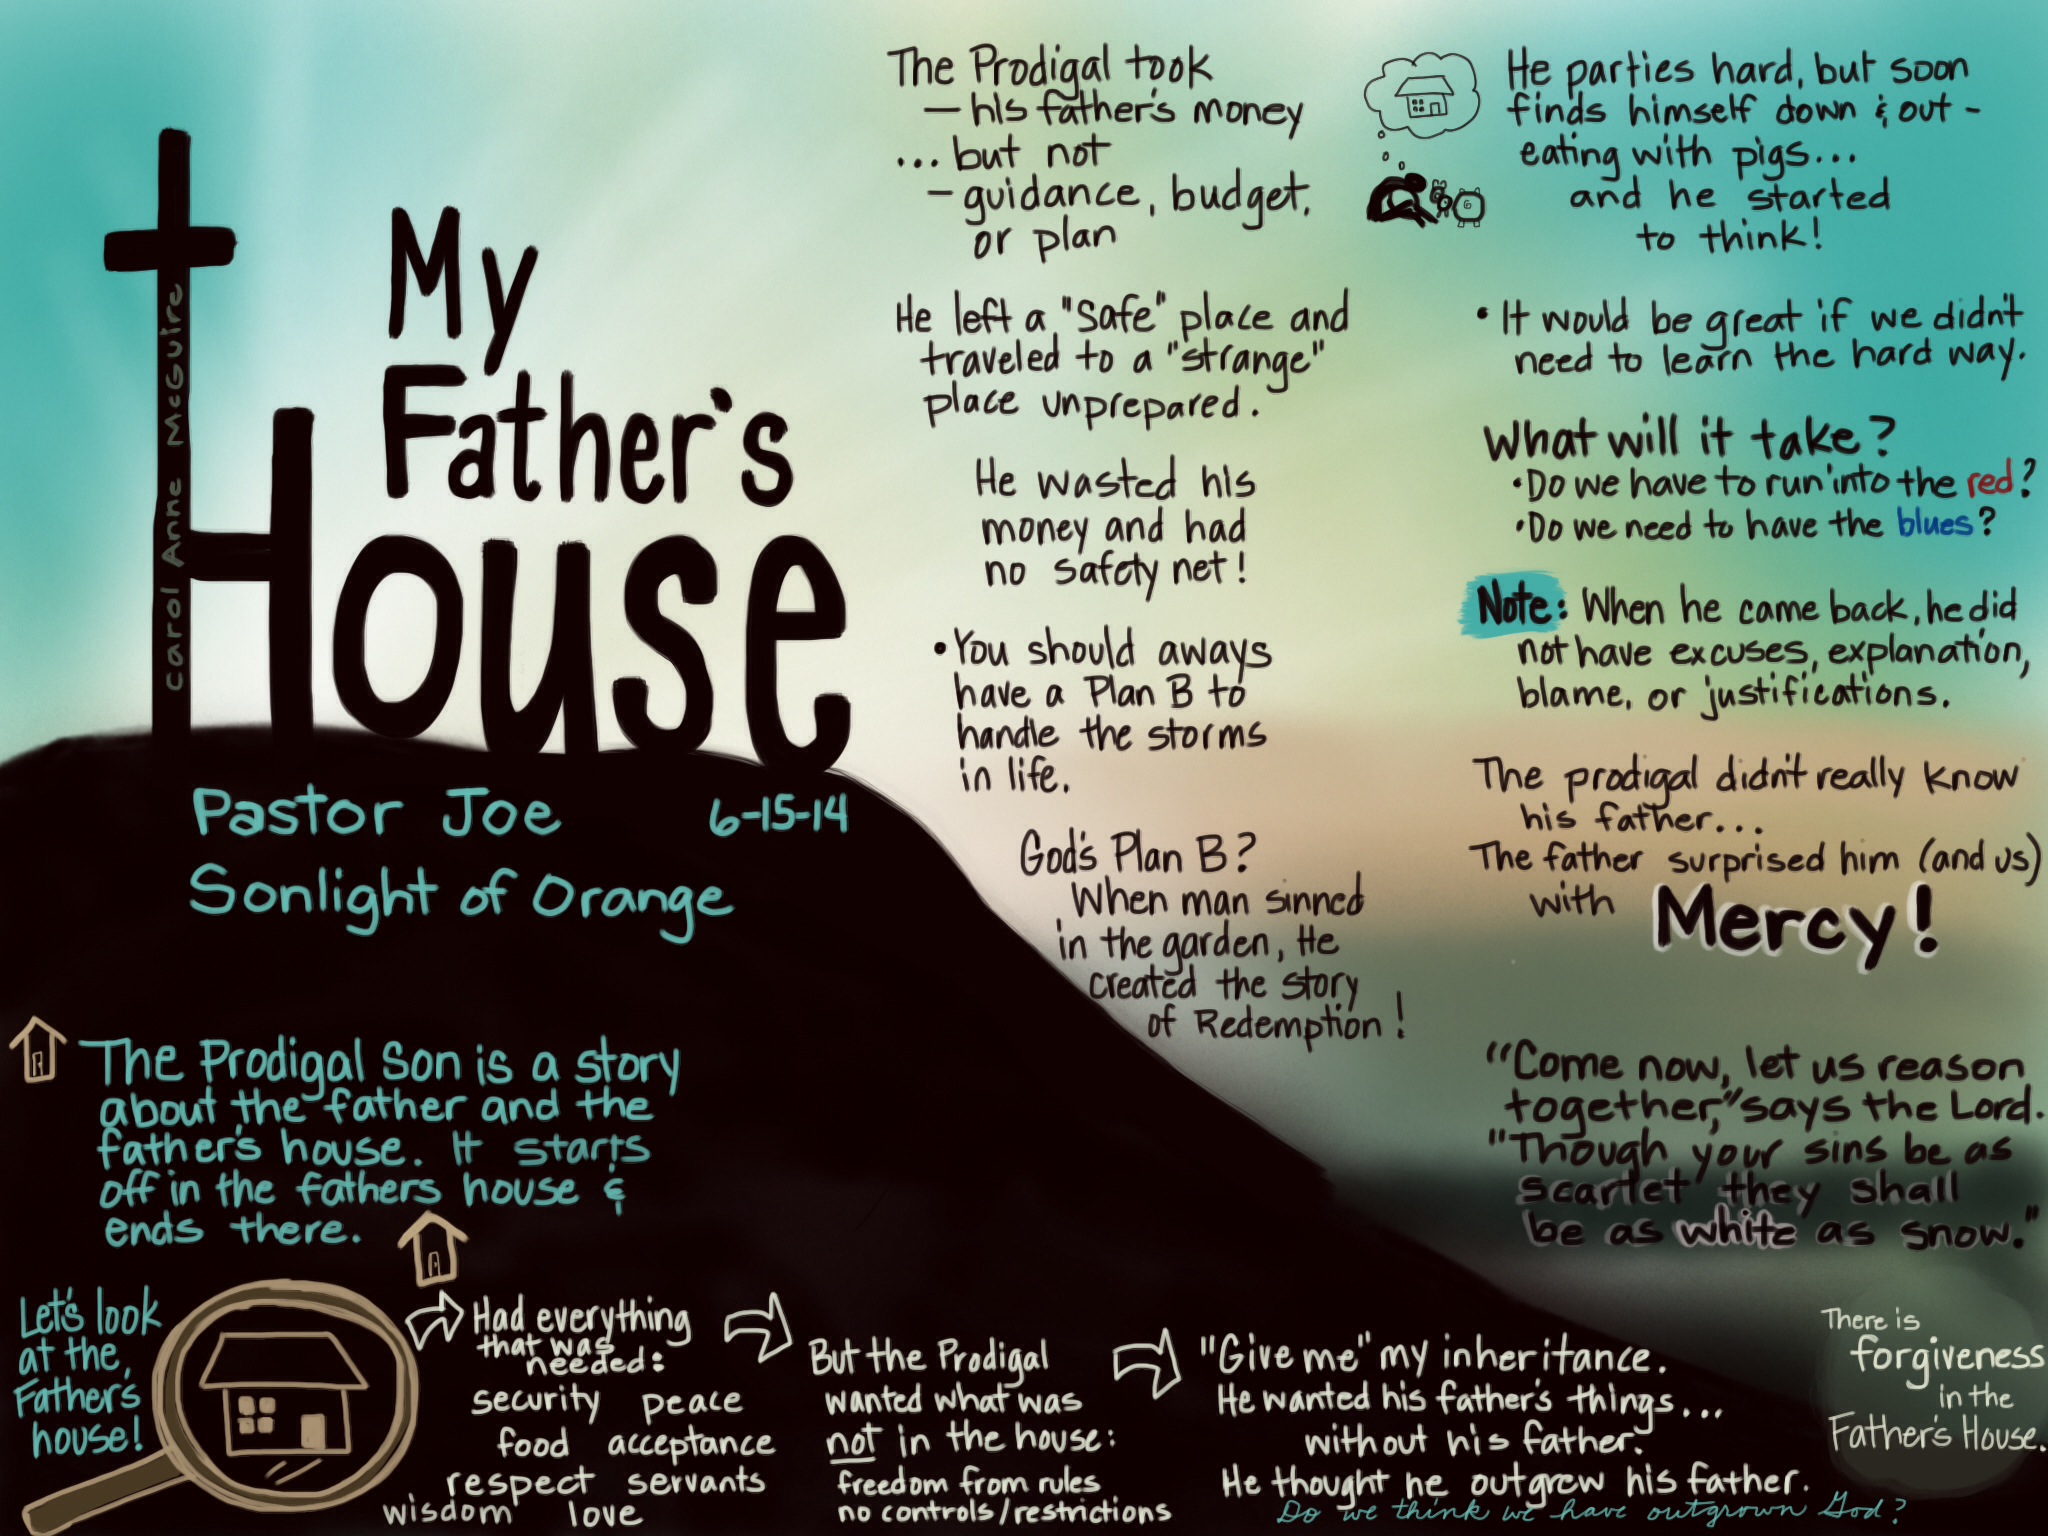 My
Father's
House
Carol Anne McGuire
Pastor Joe 6-15-14
Sonlight of Orange
The Prodigal Son is a story
about the father and the
father's house. It starts
off in the fathers house &
ends there.
Let's look
at the
Father's
house!
Had everything
that was
needed:
security peace
food acceptance
respect servants
wisdom love
But the Prodigal
wanted what was
not in the house:
freedom from rules
no controls/restrictions
"Give me" my inheritance.
He wanted his father's things...
without his father.
He thought he outgrew his father.
Do we think we have outgrown God?
The Prodigal took
- his father's money
... but not
- guidance, budget,
or plan
He left a "Safe" place and
traveled to a "strange"
place unprepared.
He wasted his
money and had
no safety net!
• You should aways
have a Plan B to
handle the storms
in life.
God's Plan B?
When man sinned
in the garden, He
created the story
of Redemption!
He parties hard, but soon
finds himself down & out -
eating with pigs...
and he started
to think!
• It would be great if we didn't
need to learn the hard way.
What will it take?
• Do we have to run into the red?
• Do we need to have the blues?
Note: When he came back, he did
not have excuses, explanation,
blame, or justifications.
The prodigal didn't really know
his father...
The father surprised him (and us)
with Mercy!
"Come now, let us reason
together," says the Lord.
"Though your sins be as
scarlet they shall
be as white as snow."
There is
forgiveness
in the
Father's House.